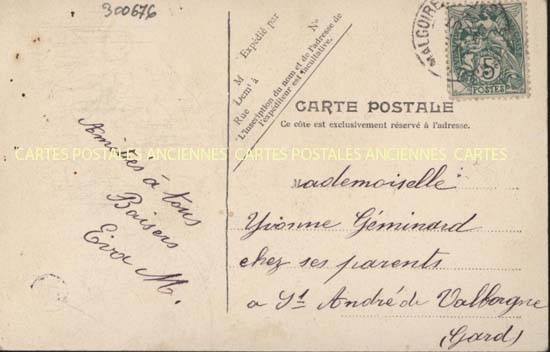 300676
Expédié par
M N°
Demt à
Rue
L'inscription du nom et de l'adresse de
l'expéditeur est facultative.
MALGOIRE
5c
POSTES
CARTE POSTALE
Ce côté est exclusivement réservé à l'adresse.
CARTES POSTALES ANCIENNES CARTES POSTALES ANCIENNES CARTES
Amitiés à tous
Baisers
Eva M.
Mademoiselle
Yvonne Géminard
chez ses parents
a St André de Valborgne
(Gard)